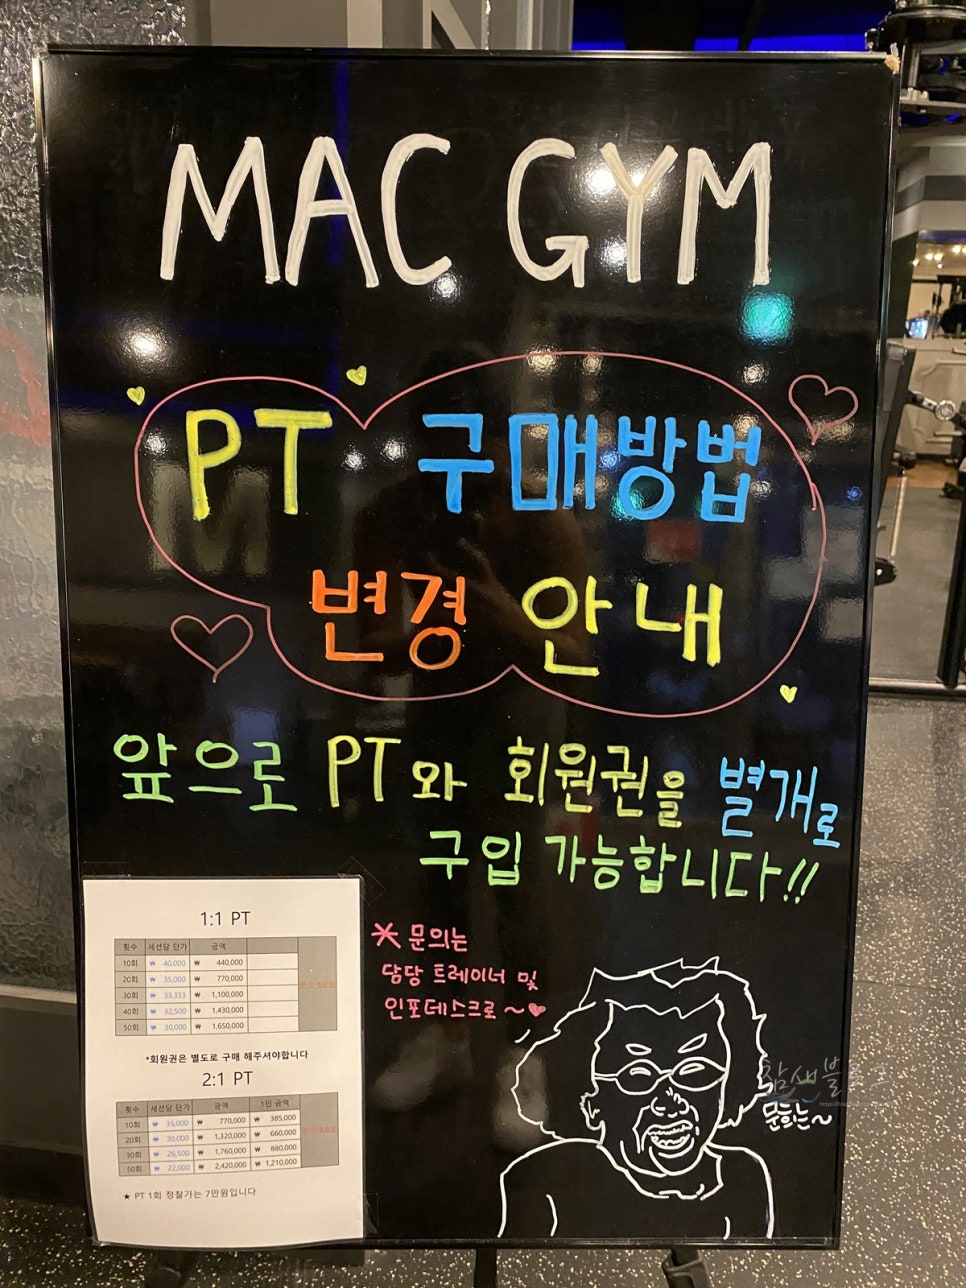 MAC GYM
PT 구매방법
변경 안내
앞으로 PT와 회원권을 별개로
구입 가능합니다!!
* 문의는
담당 트레이너 및
인포데스크로~♥
문의는~
참새블로그
1:1 PT
횟수 세션당 단가 금액
10회 ₩ 40,000 ₩ 440,000
20회 ₩ 35,000 ₩ 770,000
30회 ₩ 33,333 ₩ 1,100,000
40회 ₩ 32,500 ₩ 1,430,000
50회 ₩ 30,000 ₩ 1,650,000
*회원권은 별도로 구매 해주셔야합니다
2:1 PT
횟수 세션당 단가 금액 1인 금액
10회 ₩ 35,000 ₩ 770,000 ₩ 385,000
20회 ₩ 30,000 ₩ 1,320,000 ₩ 660,000
30회 ₩ 26,500 ₩ 1,760,000 ₩ 880,000
50회 ₩ 22,000 ₩ 2,420,000 ₩ 1,210,000
★ PT 1회 정찰가는 7만원입니다